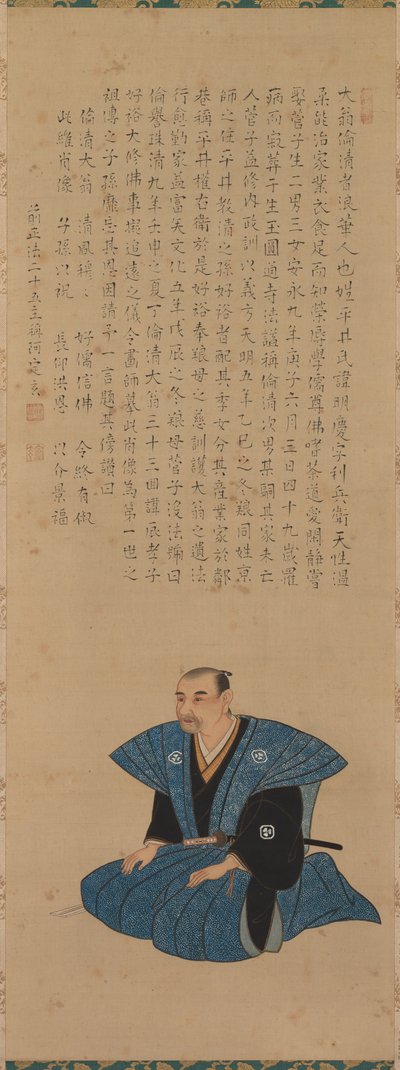 大翁倫清者浪華人也姓平井氏諱明慶字利兵衛天性温
柔能治家業衣食足而知榮辱學儒尊佛嗜茶道愛閑静嘗
娶菅子生二男三女安永九年庚子六月三日四十九歲罹
病而寂葬于生玉圓通寺法謚稱倫清次男某嗣其家未亡
人菅子益修内政訓以義方天明五年乙巳之冬娘同姓京
師之住平井教清之孫好裕者配其季女分其産業家於鄰
巷稱平井權右衛於是好裕奉娘母之慈訓護大翁之遺法
行愈勤家益富矣文化五年戊辰之冬娘母菅子没法號曰
倫譽珠清九年壬申之夏丁倫清大翁三十三回諱辰孝子
好裕大修佛事擬追遠之儀令畫師摹此肖像為第一世之
祖傳之子孫靡忘其恩因請予一言題其傍讃曰
倫清大翁 清風穆々 好儒信佛 令終有俶
此維肖像 子孫以祝 長仰洪恩 以介景福
前正法二十五主稱阿定玄